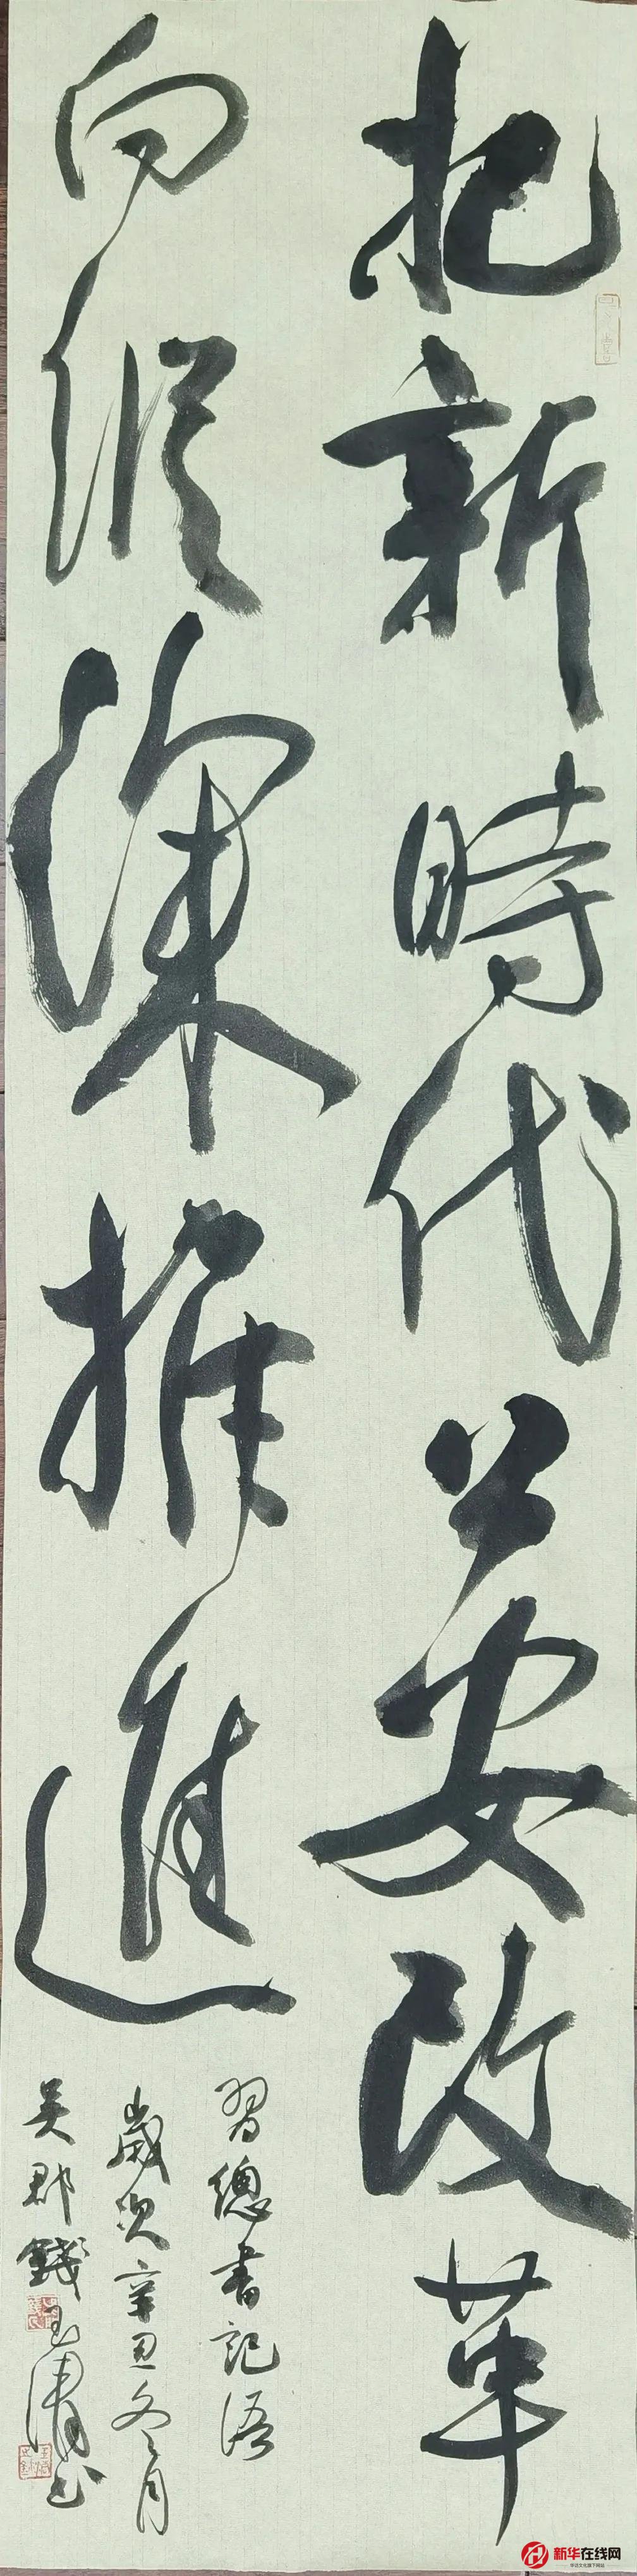 把新時代公安改革
向縱深推進
習總書記語
歲次辛丑冬月
吳郡錢玉清書
新华在线网